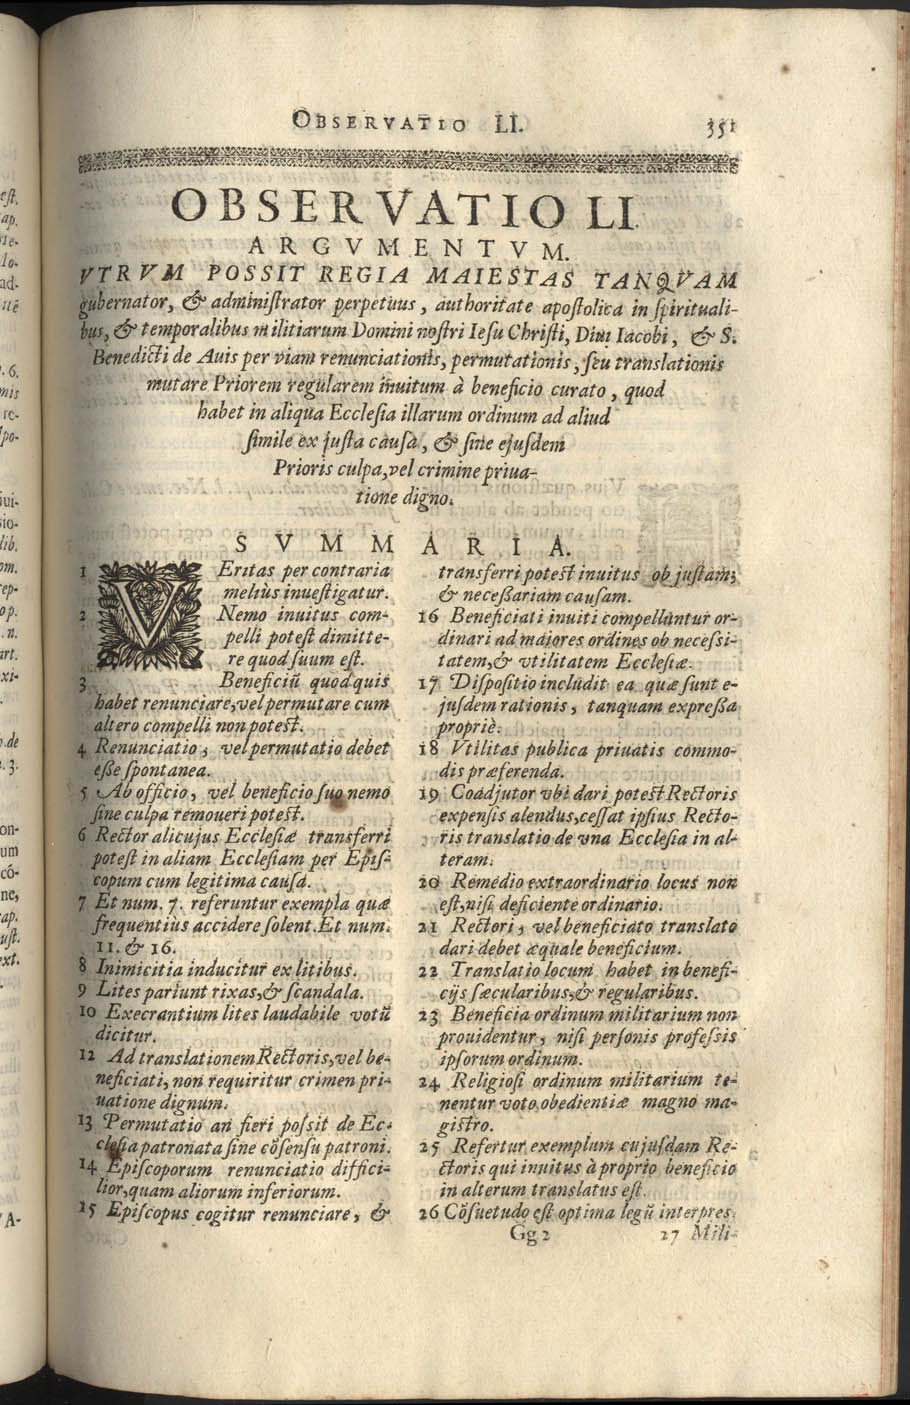 OBSERVATIO LI. 351
OBSERVATIO LI.
ARGVMENTVM.
VTRVM POSSIT REGIA MAIESTAS TANQVAM
gubernator, & adminiſtrator perpetuus, authoritate apoſtolica in ſpirituali-
bus, & temporalibus militiarum Domini noſtri Ieſu Chriſti, Diui Iacobi, & S.
Benedicti de Auis per viam renunciationis, permutationis, ſeu translationis
mutare Priorem regularem inuitum à beneficio curato, quod
habet in aliqua Eccleſia illarum ordinum ad aliud
ſimile ex juſta cauſa, & ſine ejuſdem
Prioris culpa, vel crimine priua-
tione digno.
SVMMARIA.
1 VEritas per contraria
meliùs inueſtigatur.
2 Nemo inuitus com-
pelli poteſt dimitte-
re quod ſuum eſt.
3 Beneficiũ quod quis
habet renunciare, vel permutare cum
altero compelli non poteſt.
4 Renunciatio, vel permutatio debet
eße ſpontanea.
5 Ab officio, vel beneficio ſuo nemo
ſine culpa remoueri poteſt.
6 Rector alicujus Eccleſiæ transferri
poteſt in aliam Eccleſiam per Epiſ-
copum cum legitima cauſa.
7 Et num. 7. referuntur exempla quæ
frequentiùs accidere ſolent. Et num.
11. & 16.
8 Inimicitia inducitur ex litibus.
9 Lites pariunt rixas, & ſcandala.
10 Execrantium lites laudabile votũ
dicitur.
12 Ad translationem Rectoris, vel be-
neficiati, non requiritur crimen pri-
uatione dignum.
13 Permutatio an fieri poſsit de Ec-
cleſia patronata ſine cõſenſu patroni.
14 Epiſcoporum renunciatio diffici-
lior, quam aliorum inferiorum.
15 Epiſcopus cogitur renunciare, &
transferri poteſt inuitus ob juſtam,
& neceßariam cauſam.
16 Beneficiati inuiti compelluntur or-
dinari ad maiores ordines ob neceſsi-
tatem, & vtilitatem Eccleſiæ.
17 Diſpoſitio includit ea quæ ſunt e-
juſdem rationis, tanquam expreßa
propriè.
18 Vtilitas publica priuatis commo-
dis præferenda.
19 Coadjutor vbi dari poteſt Rectoris
expenſis alendus, ceſſat ipſius Recto-
ris translatio de vna Eccleſia in al-
teram.
20 Remedio extraordinario locus non
eſt, niſi deficiente ordinario.
21 Rectori, vel beneficiato translato
dari debet æquale beneficium.
22 Translatio locum habet in benefi-
cijs ſæcularibus, & regularibus.
23 Beneficia ordinum militarium non
prouidentur, niſi perſonis profeſsis
ipſorum ordinum.
24 Religioſi ordinum militarium te-
nentur voto obedientiæ magno ma-
giſtro.
25 Refertur exemplum cujuſdam Re-
ctoris qui inuitus à proprio beneficio
in alterum translatus eſt.
26 Cõſuetudo eſt optima legũ interpres.
Gg 2 27 Mili-